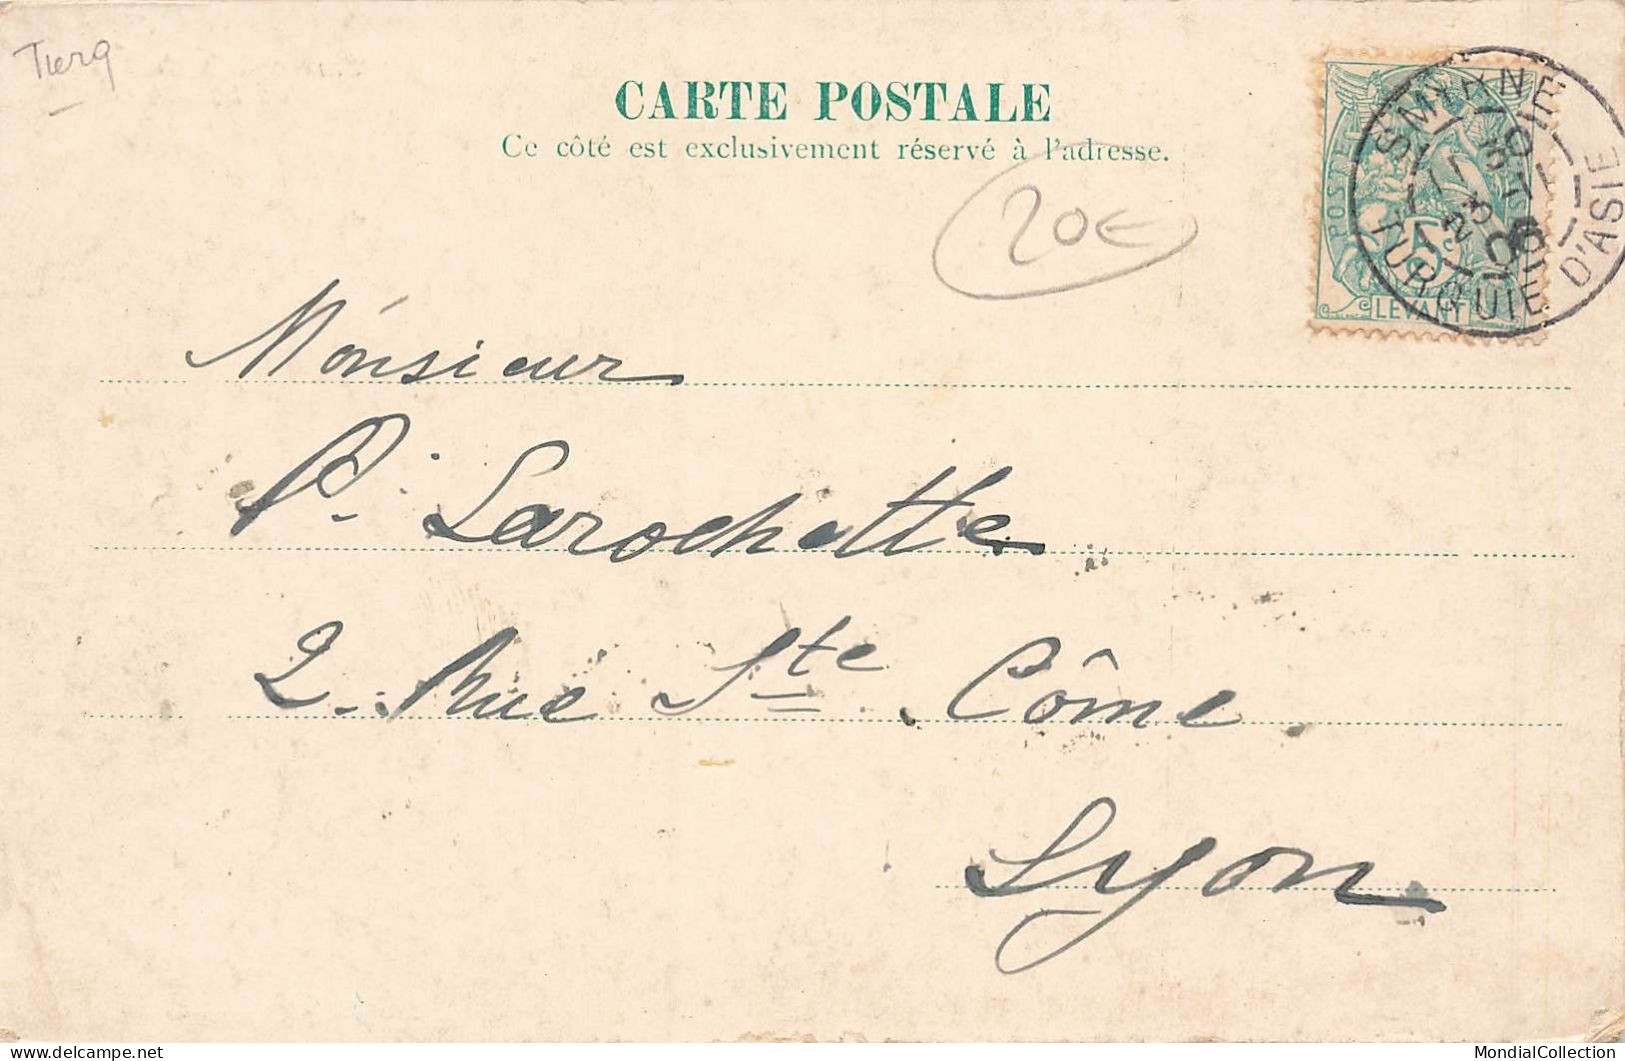 Turq
CARTE POSTALE
Ce côté est exclusivement réservé à l'adresse.
20€
POSTES
5c
LEVANT
SMYRNE
TURQUIE D'ASIE
23
06
Monsieur
P. Larochette
2. Rue Ste Côme.
Lyon
MondialCollection